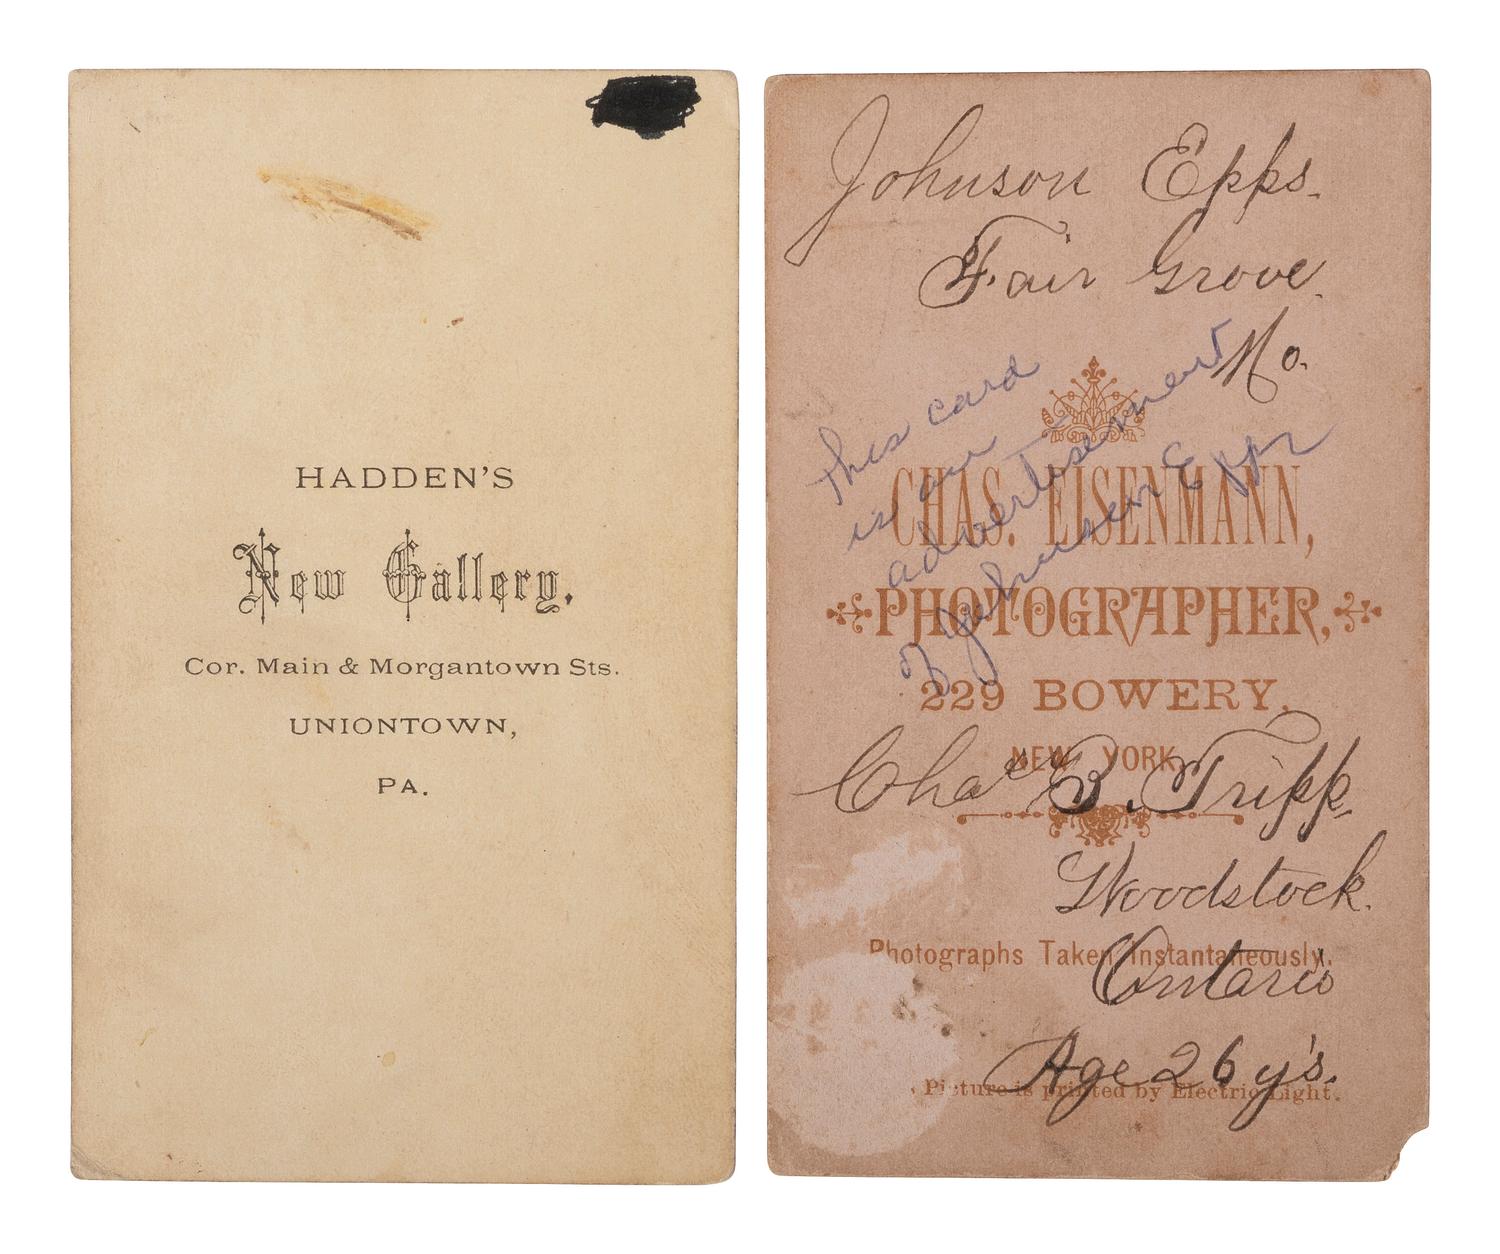 HADDEN'S
New Gallery.
Cor. Main & Morgantown Sts.
UNIONTOWN,
PA.
Johnson Epps.
Fair Grove.
Mo.
this card
is an
advertisement
of Johnson Epps
CHAS. EISENMANN,
PHOTOGRAPHER,
229 BOWERY.
NEW YORK.
Chas B. Tripp.
Woodstock.
Photographs Taken Instantaneously.
Ontario
Age 26 y's.
Picture is printed by Electric Light.